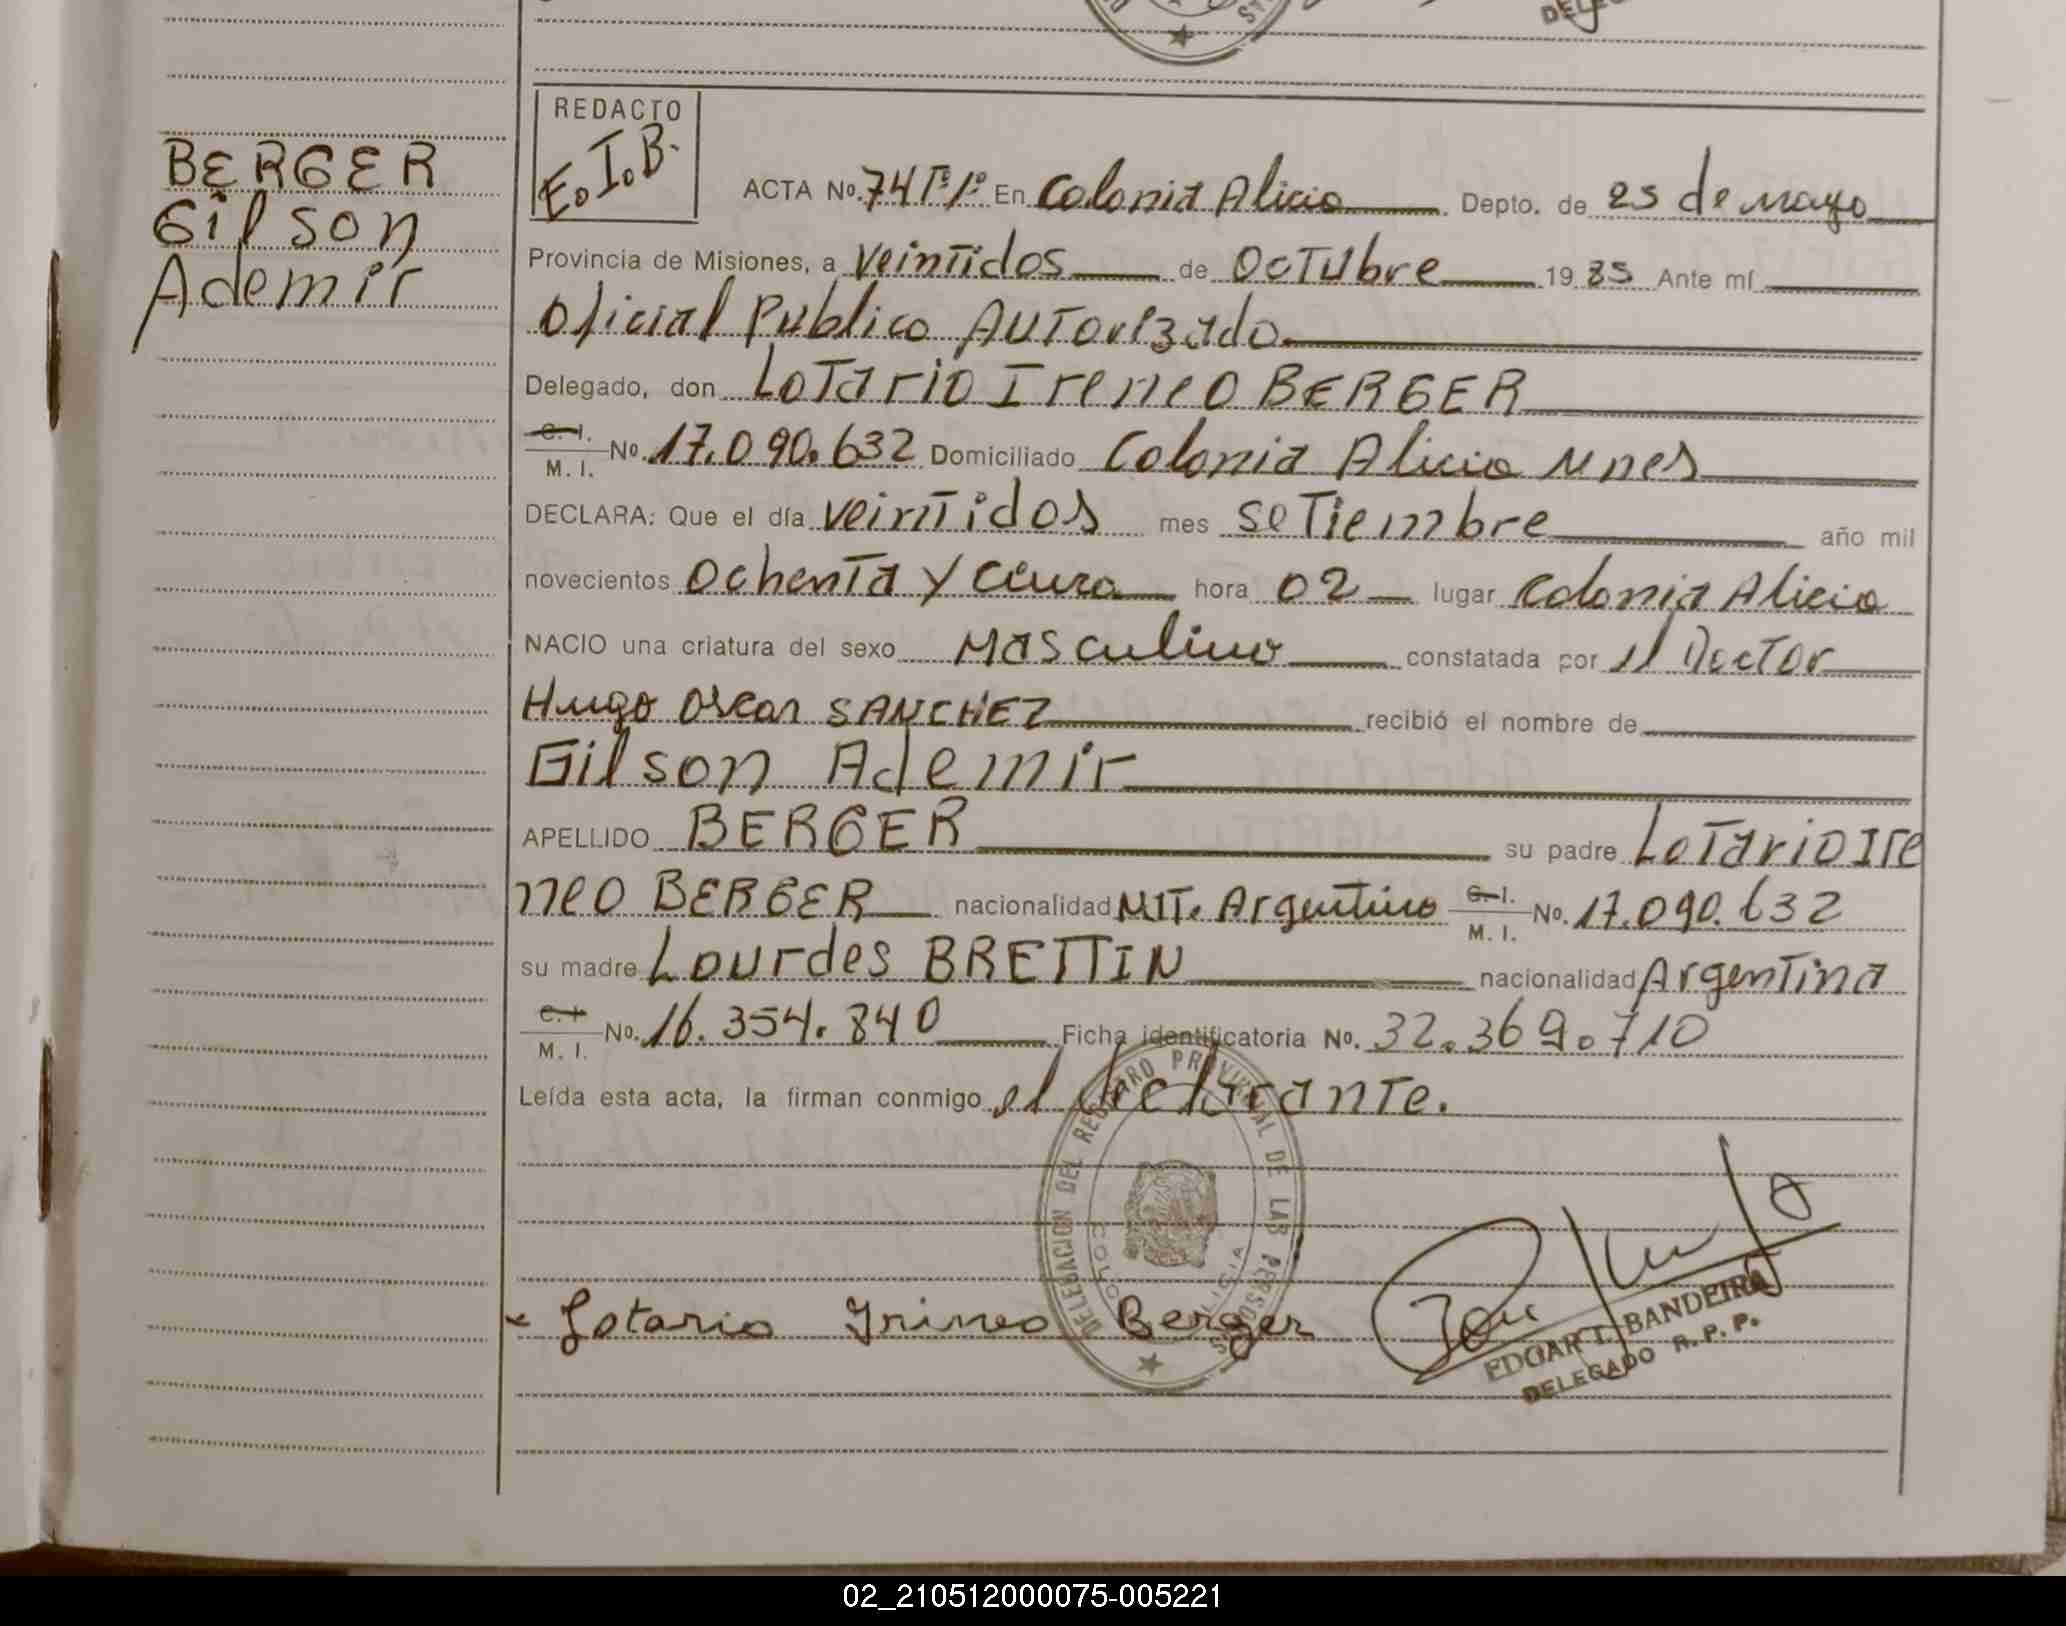 DELEG
BERGER
Gilson
Ademir
REDACTO
E.I.B.
ACTA No. 74 Tº1º En Colonia Alicia Depto. de 25 de mayo
Provincia de Misiones, a veintidos de Octubre 19 85 Ante mí
Oficial Publico Autorizado.
Delegado, don Lotario Ireneo BERGER
C. I. / M. I. No. 17.090.632 Domiciliado Colonia Alicia Mnes
DECLARA: Que el día veintidos mes setiembre año mil
novecientos Ochenta y Cinco hora 02 lugar Colonia Alicia
NACIO una criatura del sexo Masculino constatada por el Doctor
Hugo Oscar SANCHEZ recibió el nombre de
Gilson Ademir
APELLIDO BERGER su padre Lotario Ire
neo BERGER nacionalidad NIT. Argentino C. I. / M. I. No. 17.090.632
su madre Lourdes BRETTIN nacionalidad Argentina
C. I. / M. I. No. 16.354.840 Ficha identificatoria No. 32.369.710
Leída esta acta, la firman conmigo el declarante.
DELEGACION DEL REGISTRO PROVINCIAL DE LAS PERSONAS
Lotario Irineo Berger
EDGAR I. BANDEIRA
DELEGADO R. P. P.
02_210512000075-005221